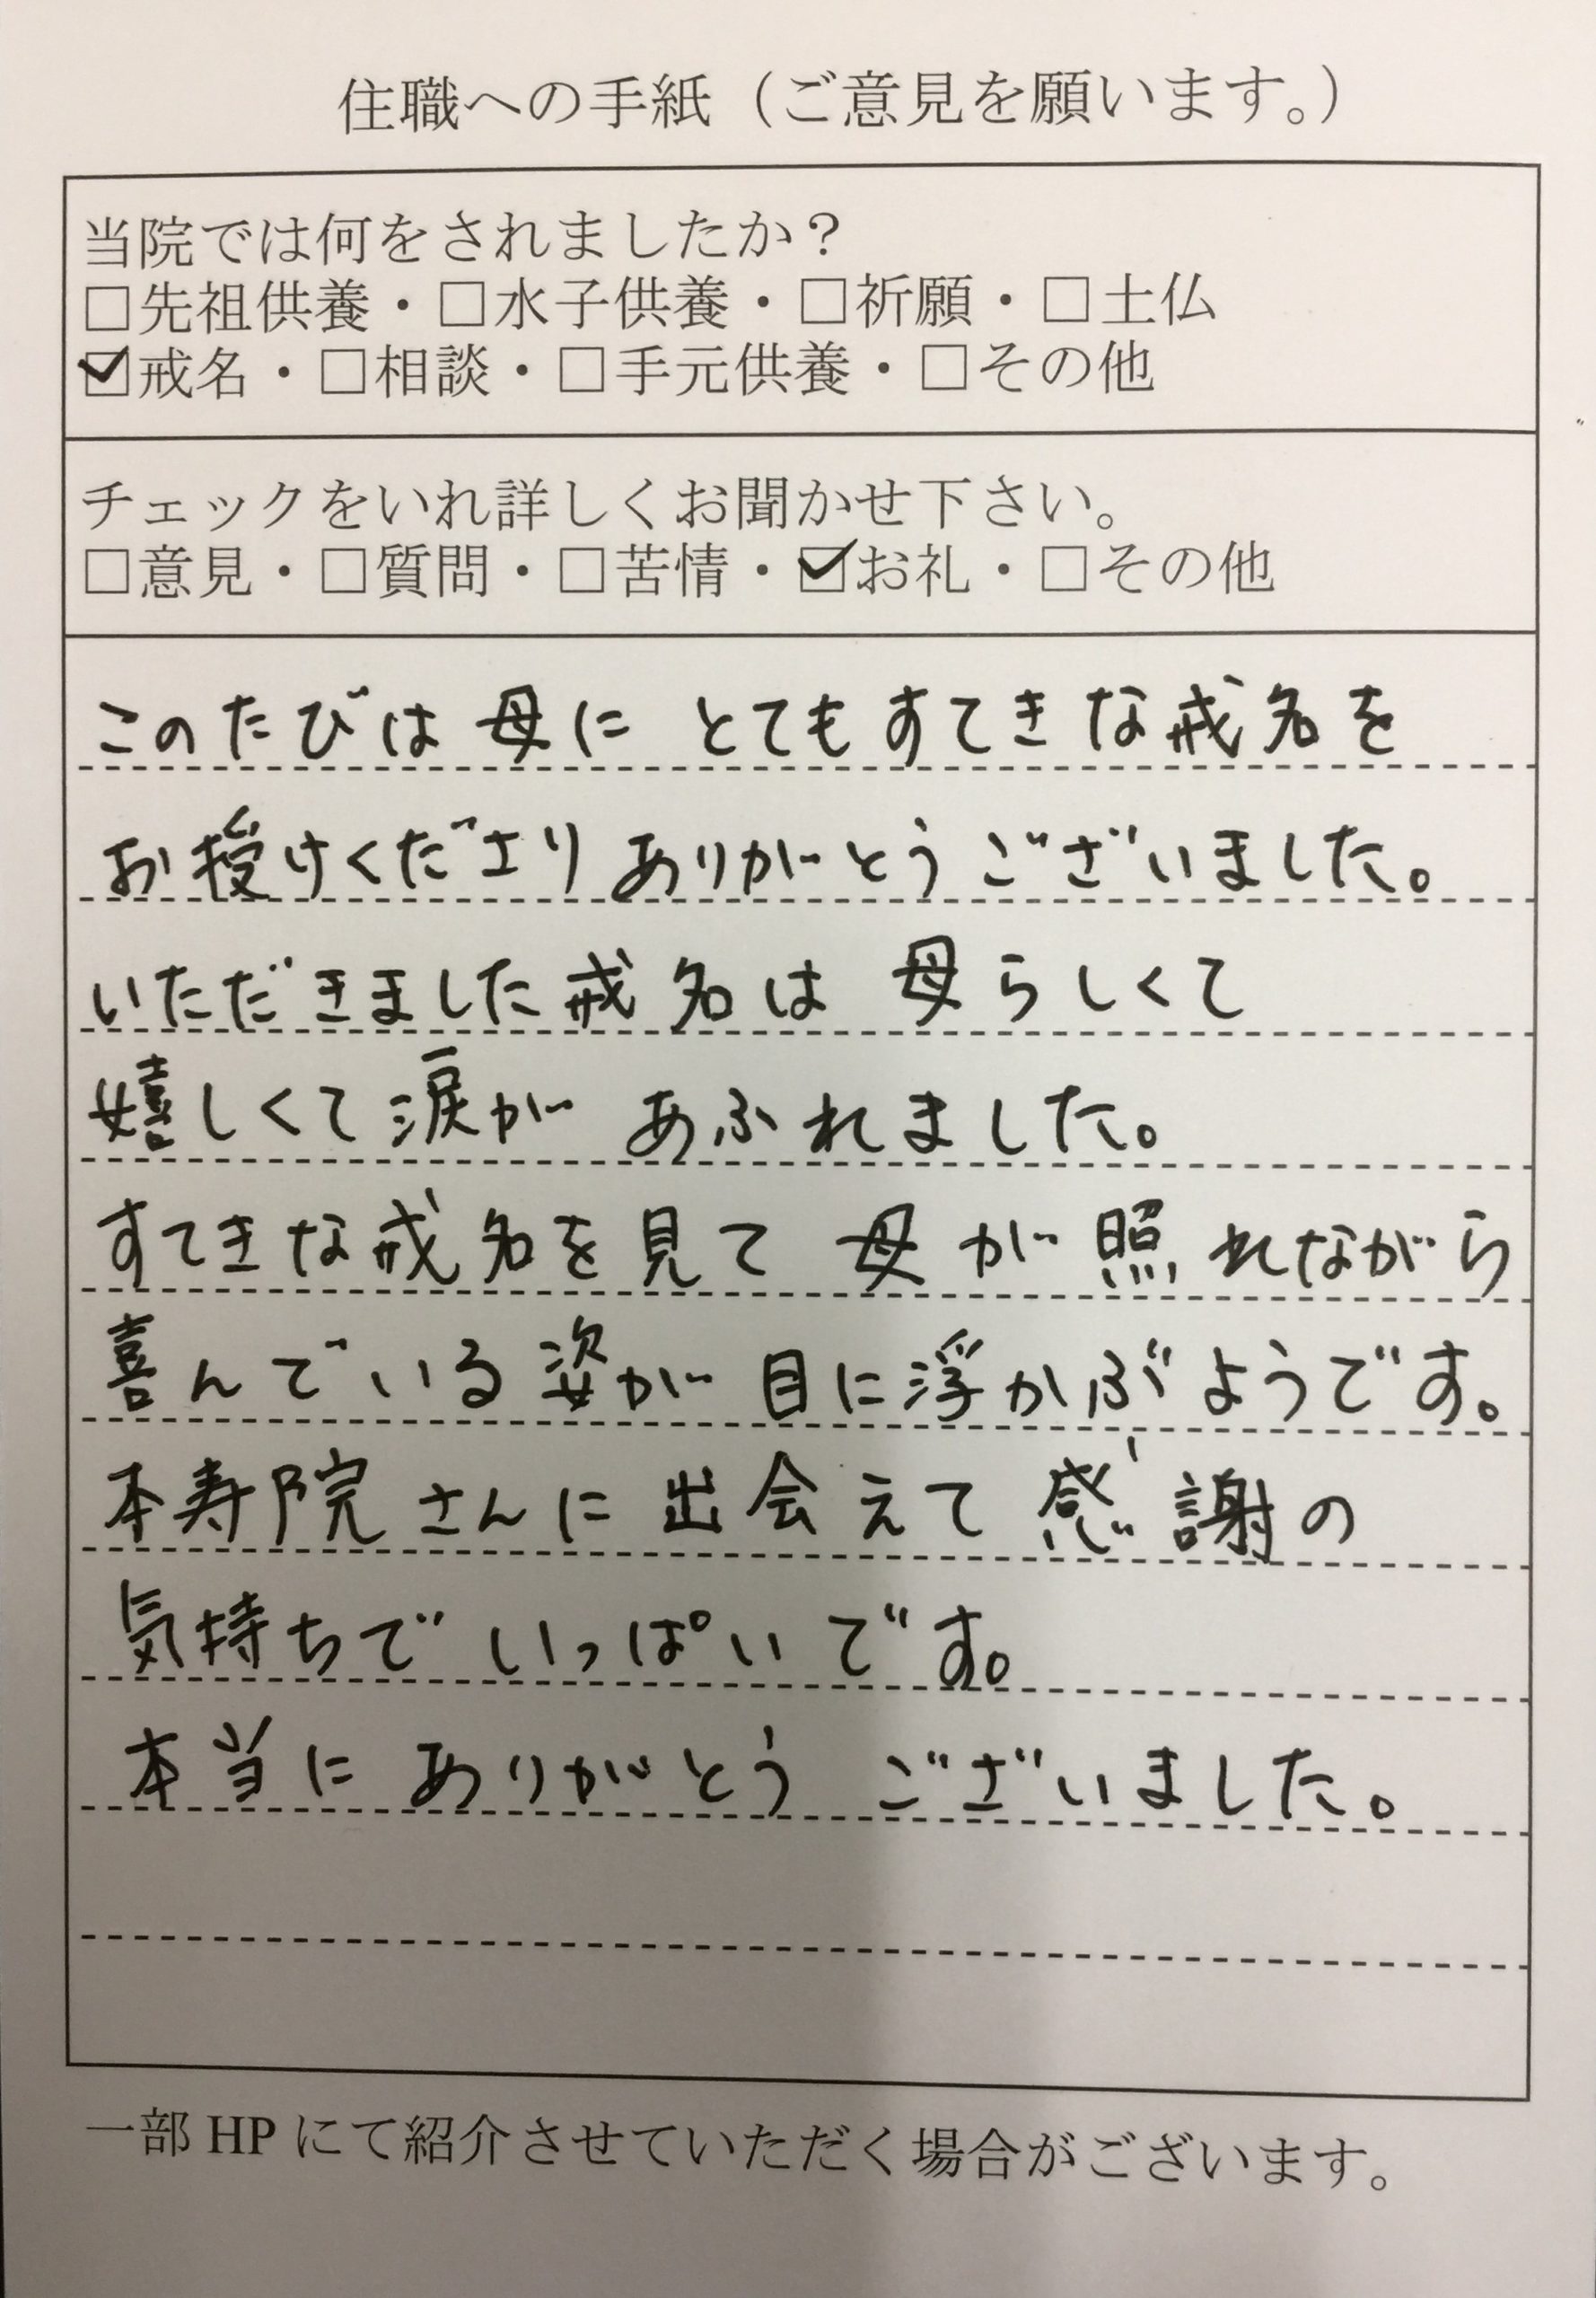 住職への手紙（ご意見を願います。）
当院では何をされましたか？
□先祖供養・□水子供養・□祈願・□土仏
☑戒名・□相談・□手元供養・□その他
チェックをいれ詳しくお聞かせ下さい。
□意見・□質問・□苦情・☑お礼・□その他
このたびは母に とてもすてきな戒名を
お授けくださり ありがとうございました。
いただきました戒名は 母らしくて
嬉しくて涙が あふれました。
すてきな戒名を見て 母が照れながら
喜んでいる姿が 目に浮かぶようです。
本寿院さんに出会えて感謝の
気持ちで いっぱいです。
本当に ありがとう ございました。
一部 HP にて紹介させていただく場合がございます。